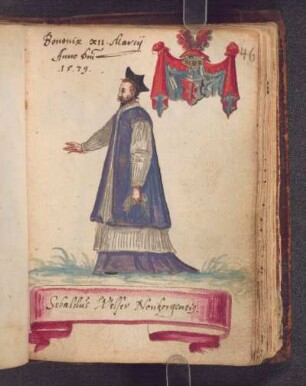 Bononiæ XII Martij
Anno Dni
1579
46
Sebaldus Welser Noribergensis.